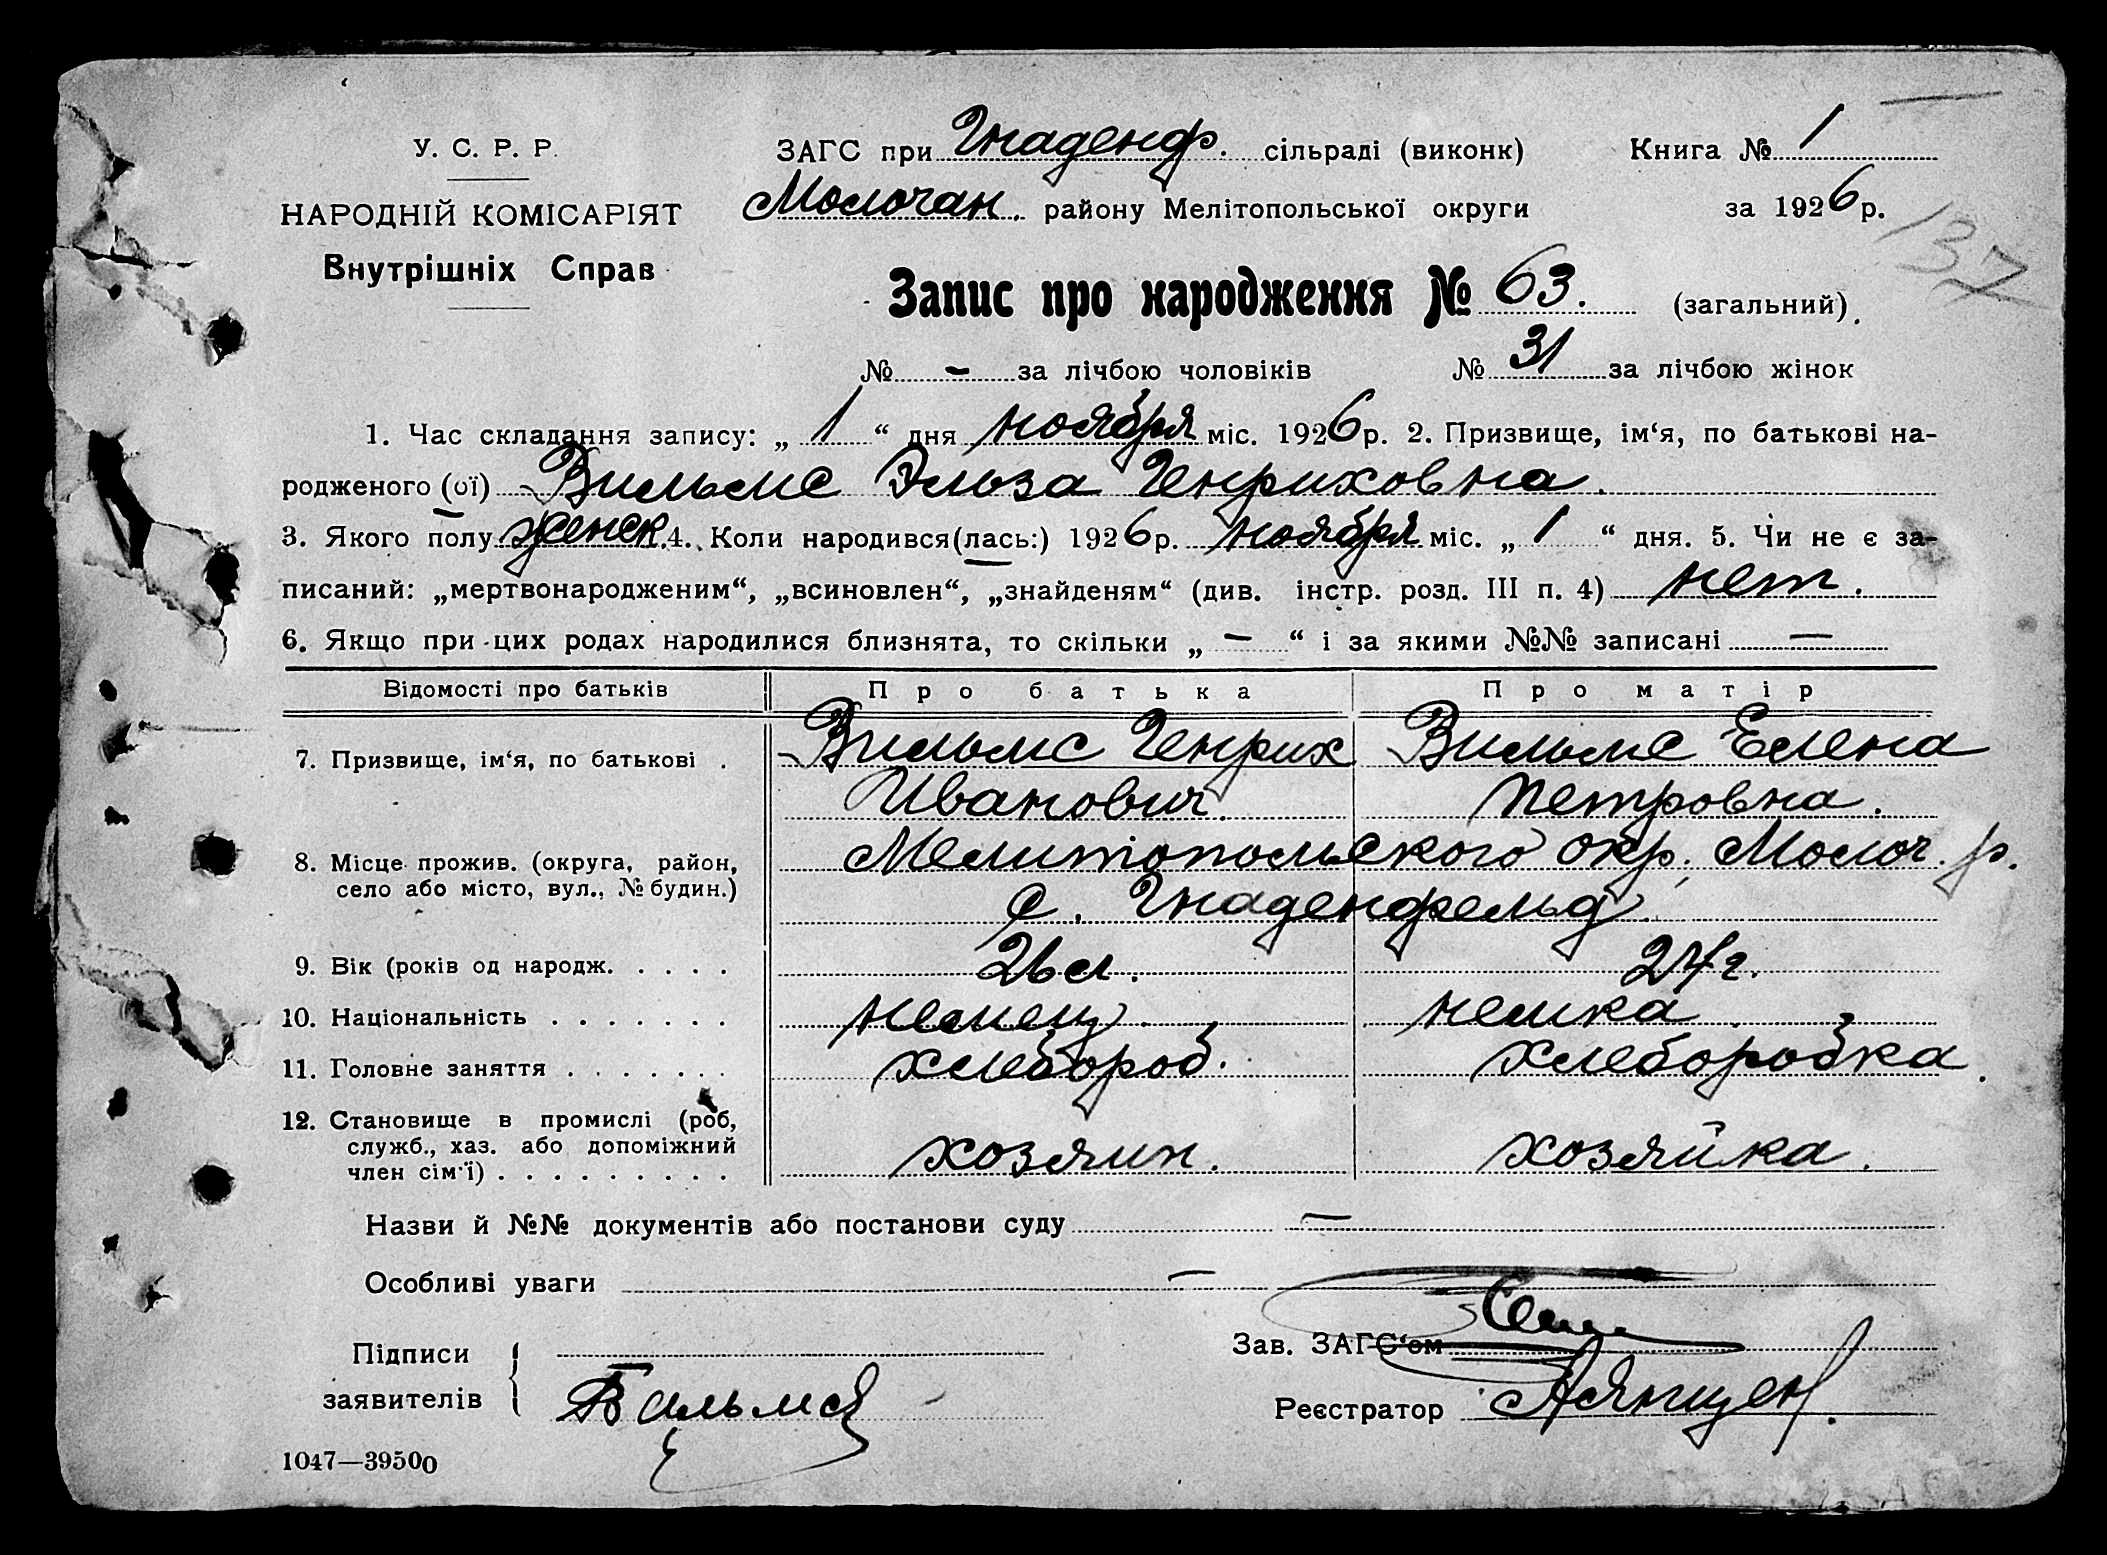 У. С. Р. Р.
НАРОДНІЙ КОМІСАРІЯТ
Внутрішніх Справ
ЗАГС при Гнаденф. сільраді (виконк)
Молочан. району Мелітопольської округи
Книга № 1
за 1926 р.
137
Запис про народження № 63. (загальний)
№ - за лічбою чоловіків № 31 за лічбою жінок
1. Час складання запису: „ 1 “ дня ноября міс. 1926 р. 2. Призвище, ім‘я, по батькові на-
родженого (ої) Вильмс Эльза Генриховна.
3. Якого полу женск. 4. Коли народився(лась:) 1926 р. ноября міс. „ 1 “ дня. 5. Чи не є за-
писаний: „мертвонародженим“, „всиновлен“, „знайденям“ (див. інстр. розд. III п. 4) нет.
6. Якщо при цих родах народилися близнята, то скільки „ — “ і за якими №№ записані —
Відомості про батьків Про батька Про матір
7. Призвище, ім‘я, по батькові . Вильмс Генрих Вильмс Елена
Иванович. Петровна.
8. Місце прожив. (округа, район, Мелитопольского окр. Молоч. р.
село або місто, вул., № будин.) с. Гнаденфельд
9. Вік (років од народж. . . . . 26 л. 24 г.
10. Національність . . . . . . . немец. немка.
11. Головне заняття . . . . . . . хлебороб. хлеборобка.
12. Становище в промислі (роб,
служб., хаз. або допоміжний
член сім'ї) . . . . . . . . . хозяин. хозяйка.
Назви й №№ документів або постанови суду —
Особливі уваги —
Підписи
заявителів
Зав. ЗАГС‘ом
Реєстратор
1047—39500